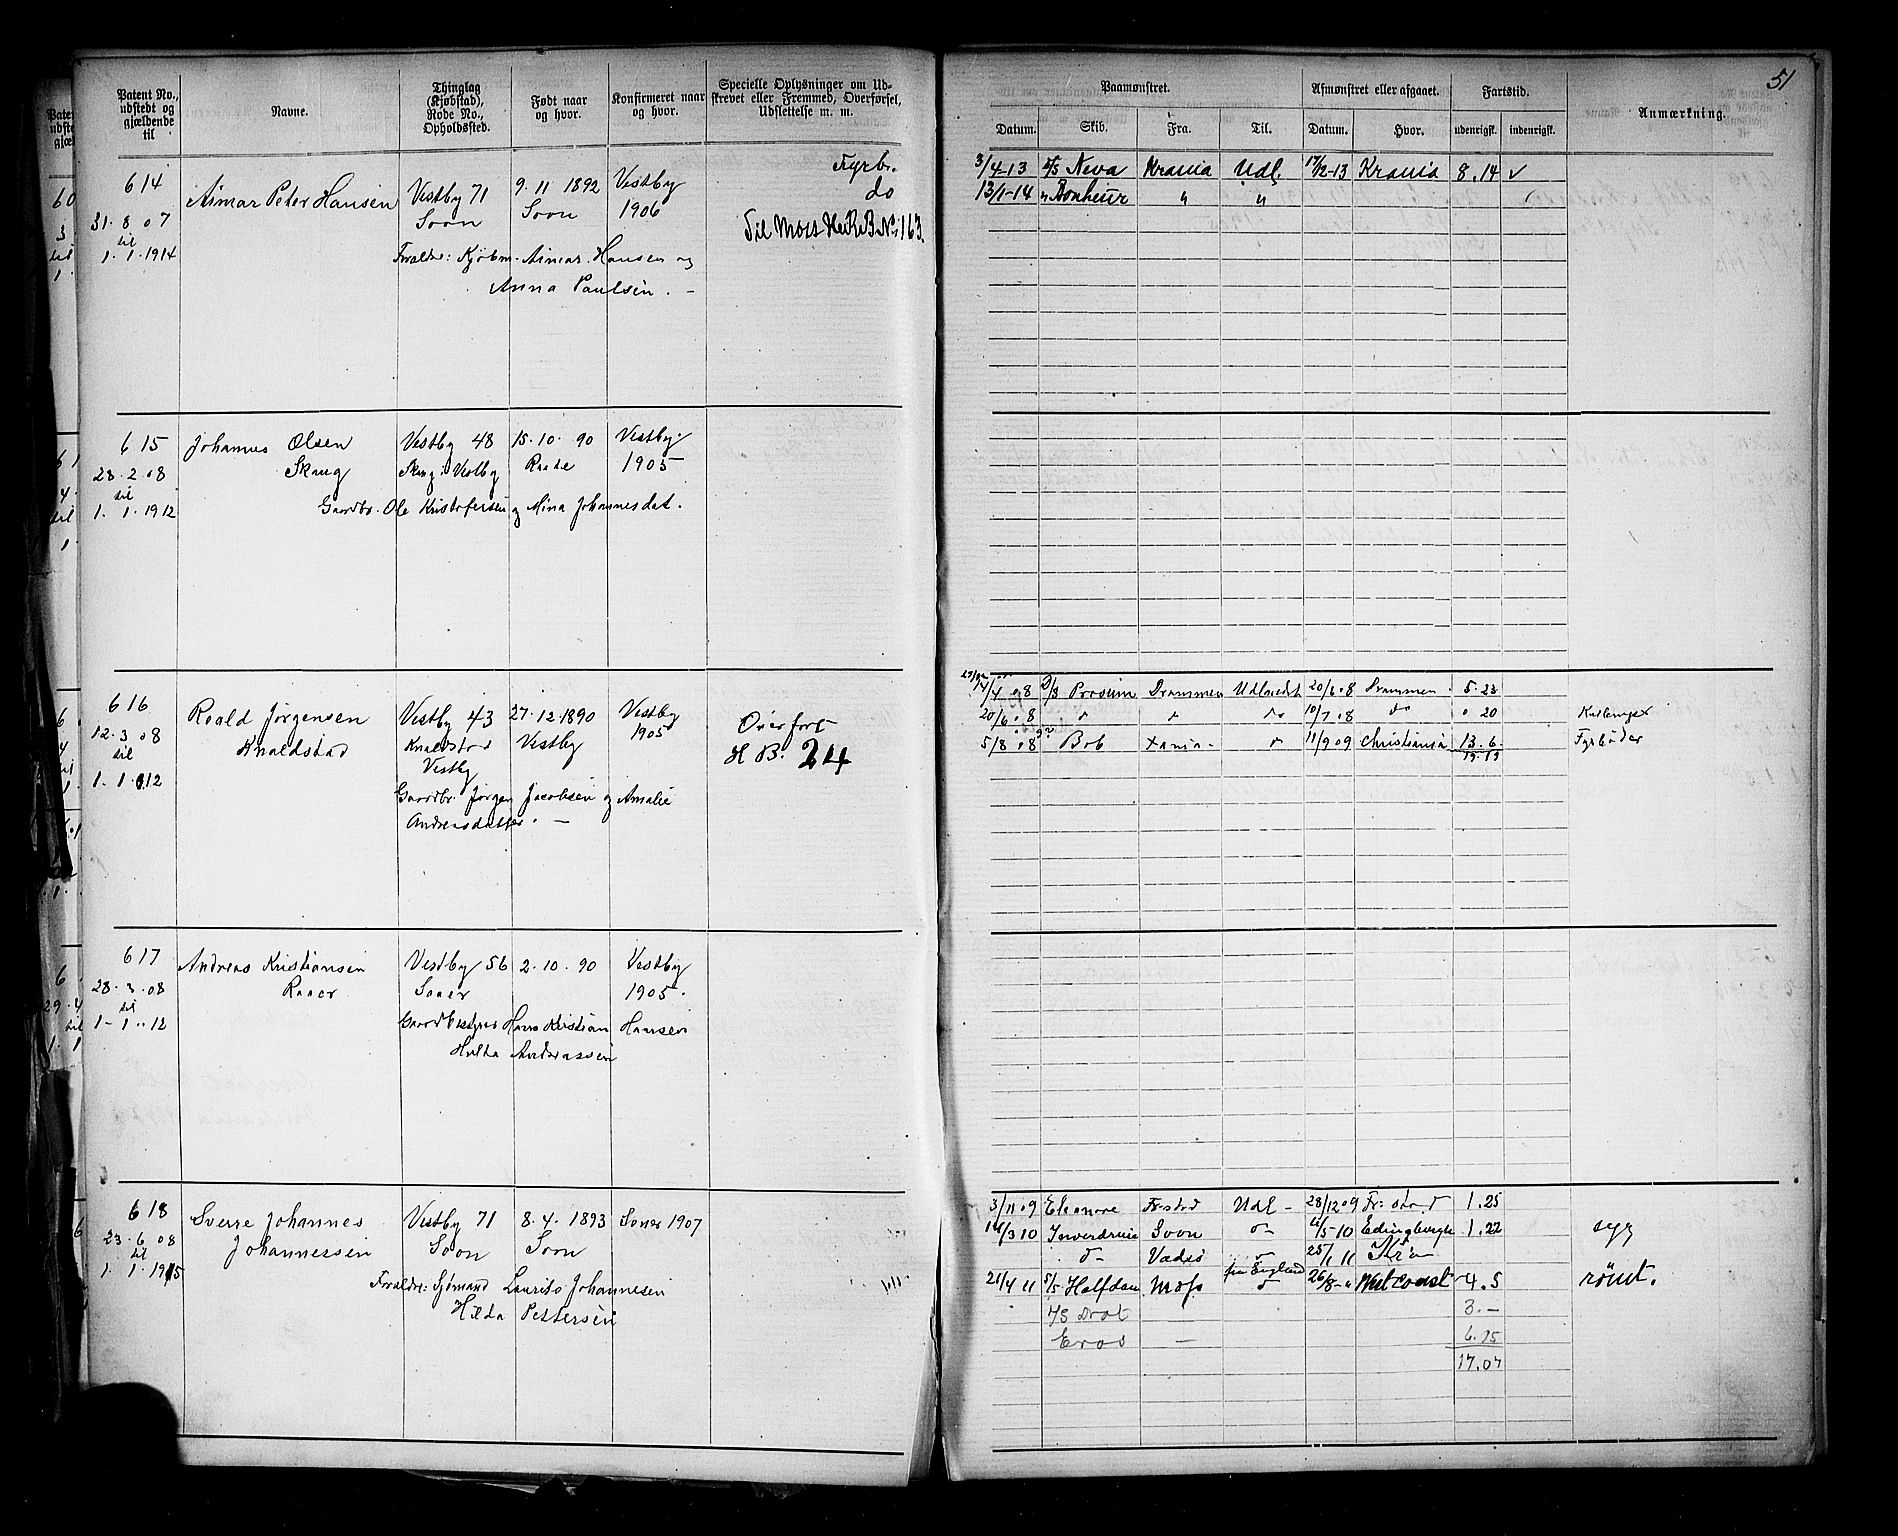 51
Patent No., udstedt og gjældende til
Navne.
Thinglag (Kjøbstad), Rode No., Opholdssted.
Født naar og hvor.
Konfirmeret naar og hvor.
Specielle Oplysninger om Udskrevet eller Fremmed, Overførsel, Udslettelse m. m.
Paamønstret.
Afmønstret eller afgaaet.
Fartstid.
Anmærkning.
Datum.
Skib.
Fra.
Til.
Datum.
Hvor.
udenrigsk.
indenrigsk.
614
31·8 07
til
1·1·1914
Aimar Peter Hansen
Vestby 71
Soon
9·11 1892
Soon
Vestby
1906
Fyrb.
do
Foraldre: Kjøbm. Aimar Hansen og
Anna Paulsen. –
3/4-13 D/S Neva Krania Udl. 17/12-13 Krania 8.14
13/1-14 " Bonheur " "
615
28·2·08
til
1·1·1912
Johannes Olsen
Skaug
Vestby 48
Skaug i Vestby
15·10·90
Raade
Vestby·
1905
Gaardbr. Ole Kristofersen og Mina Johannesdat.
616
12·3·08
til
1·1·12
Roald Jørgensen
Knaldstad
Vestby 43
Knaldstad
Vestby
27·12·1890
Vestby
Vestby
1905
Overført
H B. 24
Gaardbr. Jørgen Jacobsen og Amalie
Andreasdatter. —
14/4 08 D/S Drammen Udlandet 20/6 08 Drammen 5·23
20/6 08 " " do 10/7 08 do 0 20
5/8 08 Bob Xania " 11/9 09 Christiania 13.6
19.19
Fyrbøder
617
28·3·08
til
1-1-12
Andreas Kristiansen
Raaer
Vestby 56
2·10·90
Vestby
1905·
Gaardbestyrer Hans Kristian Hansen
Hulda Andreassen
618
23·6·08
til
1·1·1915
Sverre Johannes
Johannessen
Vestby 71
Soon
8·4·1893
Soon
Soner 1907
Foraldre: Sjømand Laurits Johannesen
Hilda Pettersen
3/11 09 Eleonore Fr.stad Udl - 28/12 09 Fr.stad 1.25
3 10 Soon 5 10 1.22 syg
Vadsø 25/1 11
fra England
21/4 11 S/S Halfdan Moss 26/8 - " Westcoast 4.5 rømt.
D/S Drot 3.—
Eros — 6.15
17.07